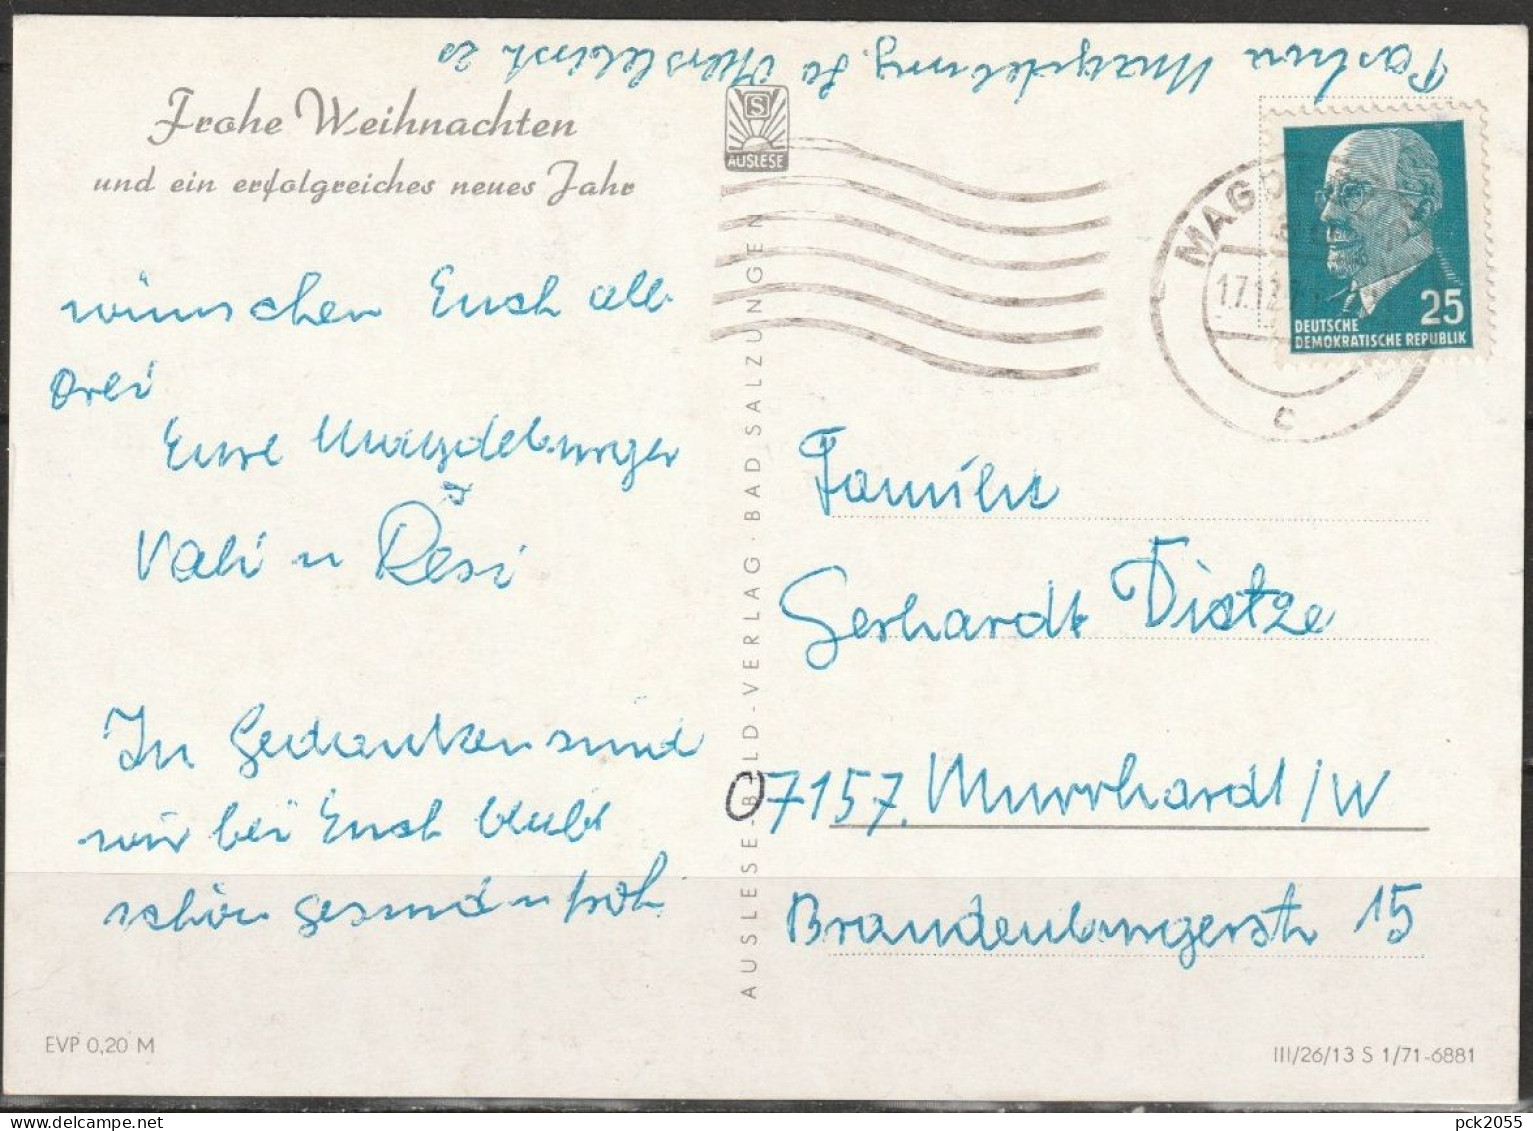 Frohe Weihnachten
und ein erfolgreiches neues Jahr
wünschen Euch alle
drei
Eure Magdeburger
Vati u Resi
In Gedanken sind
wir bei Euch bleibt
schön gesund u froh
EVP 0,20 M
Magdeburg
S
AUSLESE
AUSLESE-BILD-VERLAG · BAD SALZUNGEN
MAGD
17.12.7
c
25
DEUTSCHE
DEMOKRATISCHE REPUBLIK
Familie
Gerhardt Dietze
07157. Murrhardt/W
Brandenburgerstr 15
III/26/13 S 1/71-6881
pck2055